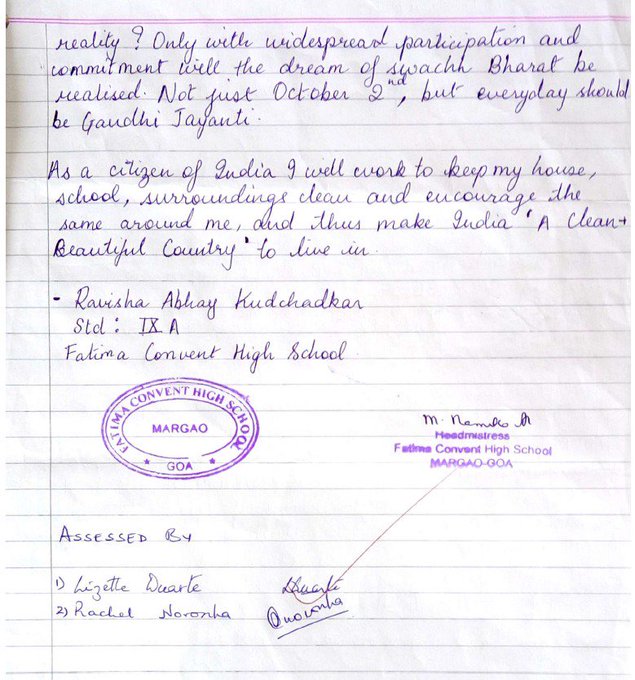 reality? Only with widespread participation and
commitment will the dream of swachh Bharat be
realised. Not just October 2nd, but everyday should
be Gandhi Jayanti.
As a citizen of India I will work to keep my house,
school, surroundings clean and encourage the
same around me, and thus make India 'A Clean +
Beautiful Country' to live in.
- Ravisha Abhay Kudchadkar
Std: IX A
Fatima Convent High School
FATIMA CONVENT HIGH SCHOOL
MARGAO
GOA
M.
Headmistress
Fatima Convent High School
MARGAO-GOA
ASSESSED By
1) Lizette Duarte Duarte
2) Rachel Noronha Rnoronha